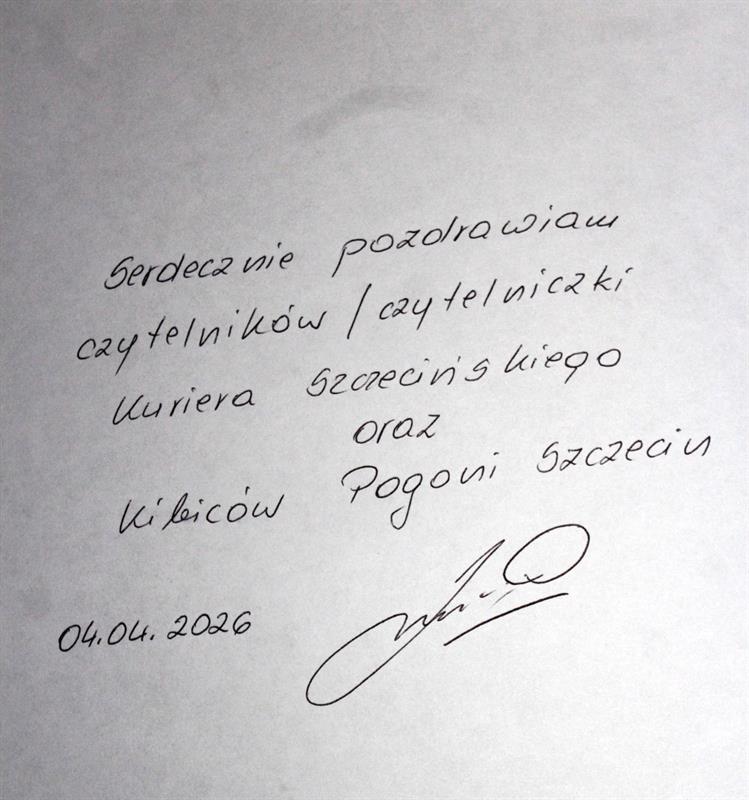 Serdecznie pozdrawiam
czytelników / czytelniczki
Kuriera Szczecińskiego
oraz
Kibiców Pogoni Szczecin
04.04.2026